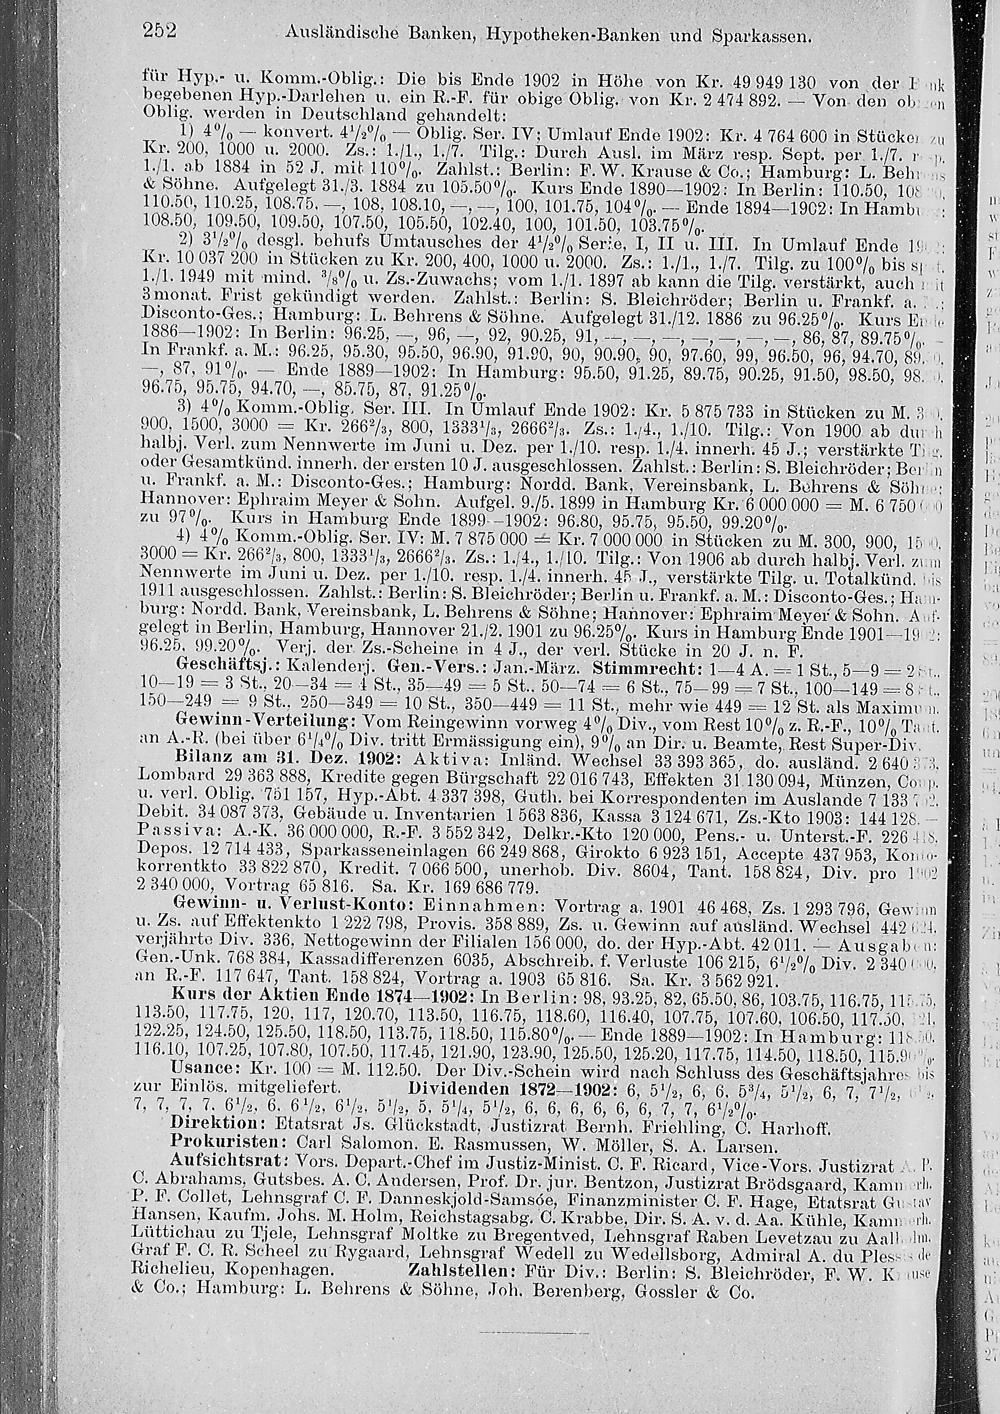 252 Ausländische Banken, Hypotheken-Banken und Sparkassen.
für Hyp.- u. Komm.-Oblig.: Die bis Ende 1902 in Höhe von Kr. 49 949 130 von der
begebenen Hyp.-Darlehen u. ein R.-F. für obige Oblig. von Kr. 2 474 892. — Von den
Oblig. werden in Deutschland gehandelt:
1) 4% — konvert. 4½% — Oblig. Ser. IV; Umlauf Ende 1902: Kr. 4 764 600 in Stücken zu
Kr. 200, 1000 u. 2000. Zs.: 1./1., 1./7. Tilg.: Durch Ausl. im März resp. Sept. per 1./7.
1./1. ab 1884 in 52 J. mit 110%. Zahlst.: Berlin: F. W. Krause & Co.; Hamburg: L. Behrens
& Söhne. Aufgelegt 31./3. 1884 zu 105.50%. Kurs Ende 1890—1902: In Berlin: 110.50,
110.50, 110.25, 108.75, —, 108, 108.10, —, —, 100, 101.75, 104%. — Ende 1894—1902: In
108.50, 109.50, 109.50, 107.50, 105.50, 102.40, 100, 101.50, 103.75%.
2) 3½% desgl. behufs Umtausches der 4½% Serie, I, II u. III. In Umlauf Ende
Kr. 10 037 200 in Stücken zu Kr. 200, 400, 1000 u. 2000. Zs.: 1./1., 1./7. Tilg. zu 100% bis
1./1. 1949 mit mind. ³/₈% u. Zs.-Zuwachs; vom 1./1. 1897 ab kann die Tilg. verstärkt, auch
3monat. Frist gekündigt werden. Zahlst.: Berlin: S. Bleichröder; Berlin u. Frankf. a.
Disconto-Ges.; Hamburg: L. Behrens & Söhne. Aufgelegt 31./12. 1886 zu 96.25%. Kurs Ende
1886—1902: In Berlin: 96.25, —, 96, —, 92, 90.25, 91, —, —, —, —, —, —, —, 86, 87, 89.75%. —
In Frankf. a. M.: 96.25, 95.30, 95.50, 96.90, 91.90, 90, 90.90, 90, 97.60, 99, 96.50, 96, 94.70,
—, 87, 91%. — Ende 1889—1902: In Hamburg: 95.50, 91.25, 89.75, 90.25, 91.50, 98.50,
96.75, 95.75, 94.70, —, 85.75, 87, 91.25%.
3) 4% Komm.-Oblig. Ser. III. In Umlauf Ende 1902: Kr. 5 875 733 in Stücken zu M.
900, 1500, 3000 = Kr. 266²/₃, 800, 1333¹/₃, 2666²/₃. Zs.: 1./4., 1./10. Tilg.: Von 1900 ab durch
halbj. Verl. zum Nennwerte im Juni u. Dez. per 1./10. resp. 1./4. innerh. 45 J.; verstärkte Tilg.
oder Gesamtkünd. innerh. der ersten 10 J. ausgeschlossen. Zahlst.: Berlin: S. Bleichröder; Berlin
u. Frankf. a. M.: Disconto-Ges.; Hamburg: Nordd. Bank, Vereinsbank, L. Behrens & Söhne;
Hannover: Ephraim Meyer & Sohn. Aufgel. 9./5. 1899 in Hamburg Kr. 6 000 000 = M. 6 750 000
zu 97%. Kurs in Hamburg Ende 1899—1902: 96.80, 95.75, 95.50, 99.20%.
4) 4% Komm.-Oblig. Ser. IV: M. 7 875 000 = Kr. 7 000 000 in Stücken zu M. 300, 900, 1500,
3000 = Kr. 266²/₃, 800, 1333¹/₃, 2666²/₃. Zs.: 1./4., 1./10. Tilg.: Von 1906 ab durch halbj. Verl. zum
Nennwerte im Juni u. Dez. per 1./10. resp. 1./4. innerh. 45 J., verstärkte Tilg. u. Totalkünd. bis
1911 ausgeschlossen. Zahlst.: Berlin: S. Bleichröder; Berlin u. Frankf. a. M.: Disconto-Ges.; Ham-
burg: Nordd. Bank, Vereinsbank, L. Behrens & Söhne; Hannover: Ephraim Meyer & Sohn. Auf-
gelegt in Berlin, Hamburg, Hannover 21./2. 1901 zu 96.25%. Kurs in Hamburg Ende 1901—1902:
96.25, 99.20%. Verj. der Zs.-Scheine in 4 J., der verl. Stücke in 20 J. n. F.
Geschäftsj.: Kalenderj. Gen.-Vers.: Jan.-März. Stimmrecht: 1—4 A. = 1 St., 5—9 = 2 St.,
10—19 = 3 St., 20—34 = 4 St., 35—49 = 5 St., 50—74 = 6 St., 75—99 = 7 St., 100—149 = 8 St.,
150—249 = 9 St., 250—349 = 10 St., 350—449 = 11 St., mehr wie 449 = 12 St. als Maximum.
Gewinn-Verteilung: Vom Reingewinn vorweg 4% Div., vom Rest 10% z. R.-F., 10% Tant.
an A.-R. (bei über 6¼% Div. tritt Ermässigung ein), 9% an Dir. u. Beamte, Rest Super-Div.
Bilanz am 31. Dez. 1902: Aktiva: Inländ. Wechsel 33 393 365, do. ausländ. 2 640 373,
Lombard 29 363 888, Kredite gegen Bürgschaft 22 016 743, Effekten 31 130 094, Münzen, Coup.
u. verl. Oblig. 751 157, Hyp.-Abt. 4 337 398, Guth. bei Korrespondenten im Auslande
Debit. 34 087 373, Gebäude u. Inventarien 1 563 836, Kassa 3 124 671, Zs.-Kto 1903: 144 128. —
Passiva: A.-K. 36 000 000, R.-F. 3 552 342, Delkr.-Kto 120 000, Pens.- u. Unterst.-F. 226 418,
Depos. 12 714 433, Sparkasseneinlagen 66 249 868, Girokto 6 923 151, Accepte 437 953, Konto-
korrentkto 33 822 870, Kredit. 7 066 500, unerhob. Div. 8604, Tant. 158 824, Div. pro 1902
2 340 000, Vortrag 65 816. Sa. Kr. 169 686 779.
Gewinn- u. Verlust-Konto: Einnahmen: Vortrag a. 1901 46 468, Zs. 1 293 796, Gewinn
u. Zs. auf Effektenkto 1 222 798, Provis. 358 889, Zs. u. Gewinn auf ausländ. Wechsel 442 624,
verjährte Div. 336, Nettogewinn der Filialen 156 000, do. der Hyp.-Abt. 42 011. — Ausgaben:
Gen.-Unk. 768 384, Kassadifferenzen 6035, Abschreib. f. Verluste 106 215, 6½% Div. 2 340 000,
an R.-F. 117 647, Tant. 158 824, Vortrag a. 1903 65 816. Sa. Kr. 3 562 921.
Kurs der Aktien Ende 1874—1902: In Berlin: 98, 93.25, 82, 65.50, 86, 103.75, 116.75,
113.50, 117.75, 120, 117, 120.70, 113.50, 116.75, 118.60, 116.40, 107.75, 107.60, 106.50, 117.50,
122.25, 124.50, 125.50, 118.50, 113.75, 118.50, 115.80%. — Ende 1889—1902: In Hamburg:
116.10, 107.25, 107.80, 107.50, 117.45, 121.90, 123.90, 125.50, 125.20, 117.75, 114.50, 118.50,
Usance: Kr. 100 = M. 112.50. Der Div.-Schein wird nach Schluss des Geschäftsjahres bis
zur Einlös. mitgeliefert. Dividenden 1872—1902: 6, 5½, 6, 6, 5¾, 5½, 6, 7, 7½,
7, 7, 7, 7, 6½, 6, 6½, 6½, 5½, 5, 5¼, 5½, 6, 6, 6, 6, 6, 6, 7, 7, 6½%.
Direktion: Etatsrat Js. Glückstadt, Justizrat Bernh. Friehling, C. Harhoff.
Prokuristen: Carl Salomon, E. Rasmussen, W. Möller, S. A. Larsen.
Aufsichtsrat: Vors. Depart.-Chef im Justiz-Minist. C. F. Ricard, Vice-Vors. Justizrat
C. Abrahams, Gutsbes. A. C. Andersen, Prof. Dr. jur. Bentzon, Justizrat Brödsgaard, Kammerh.
P. F. Collet, Lehnsgraf C. F. Danneskjold-Samsöe, Finanzminister C. F. Hage, Etatsrat Gustav
Hansen, Kaufm. Johs. M. Holm, Reichstagsabg. C. Krabbe, Dir. S. A. v. d. Aa. Kühle, Kammerh.
Lüttichau zu Tjele, Lehnsgraf Moltke zu Bregentved, Lehnsgraf Raben Levetzau zu Aalholm,
Graf F. C. R. Scheel zu Rygaard, Lehnsgraf Wedell zu Wedellsborg, Admiral A. du Plessis de
Richelieu, Kopenhagen. Zahlstellen: Für Div.: Berlin: S. Bleichröder, F. W. Krause
& Co.; Hamburg: L. Behrens & Söhne, Joh. Berenberg, Gossler & Co.